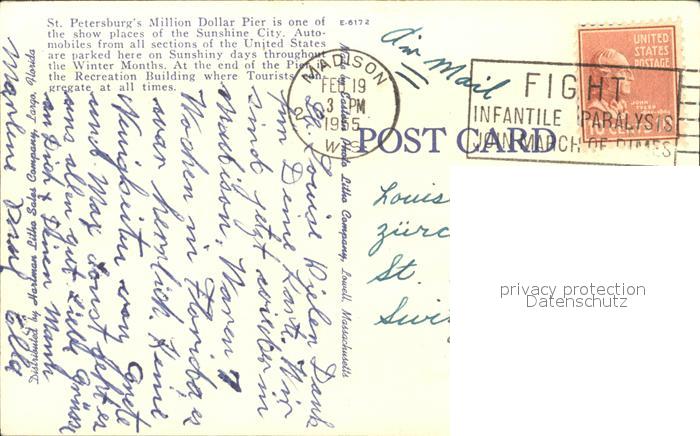 St. Petersburg's Million Dollar Pier is one of
the show places of the Sunshine City. Auto-
mobiles from all sections of the United States
are parked here on Sunshiny days throughout
the Winter Months. At the end of the Pier is
the Recreation Building where Tourists
gregate at all times.
E-6172
Air Mail
MADISON
FEB 19
3 PM
1955
WIS.
FIGHT
INFANTILE PARALYSIS
JOIN MARCH OF DIMES
UNITED
STATES
POSTAGE
JOHN TYLER
POST CARD
Louis
Zürc
St.
Swi
privacy protection
Datenschutz
Litho Company, Lowell, Massachusetts
Distributed by Hartman Litho Sales Company, Largo, Florida
Louise Vielen Dank
für Deine Karte. Wir
sind jetzt wieder in
Madison. Waren 7
Wochen in Florida es
war herrlich. Keine
Neuigkeiten von
und Max sonst geht es
uns allen gut. Liebe Grüsse
an Dich & Deinen Mann
Ella